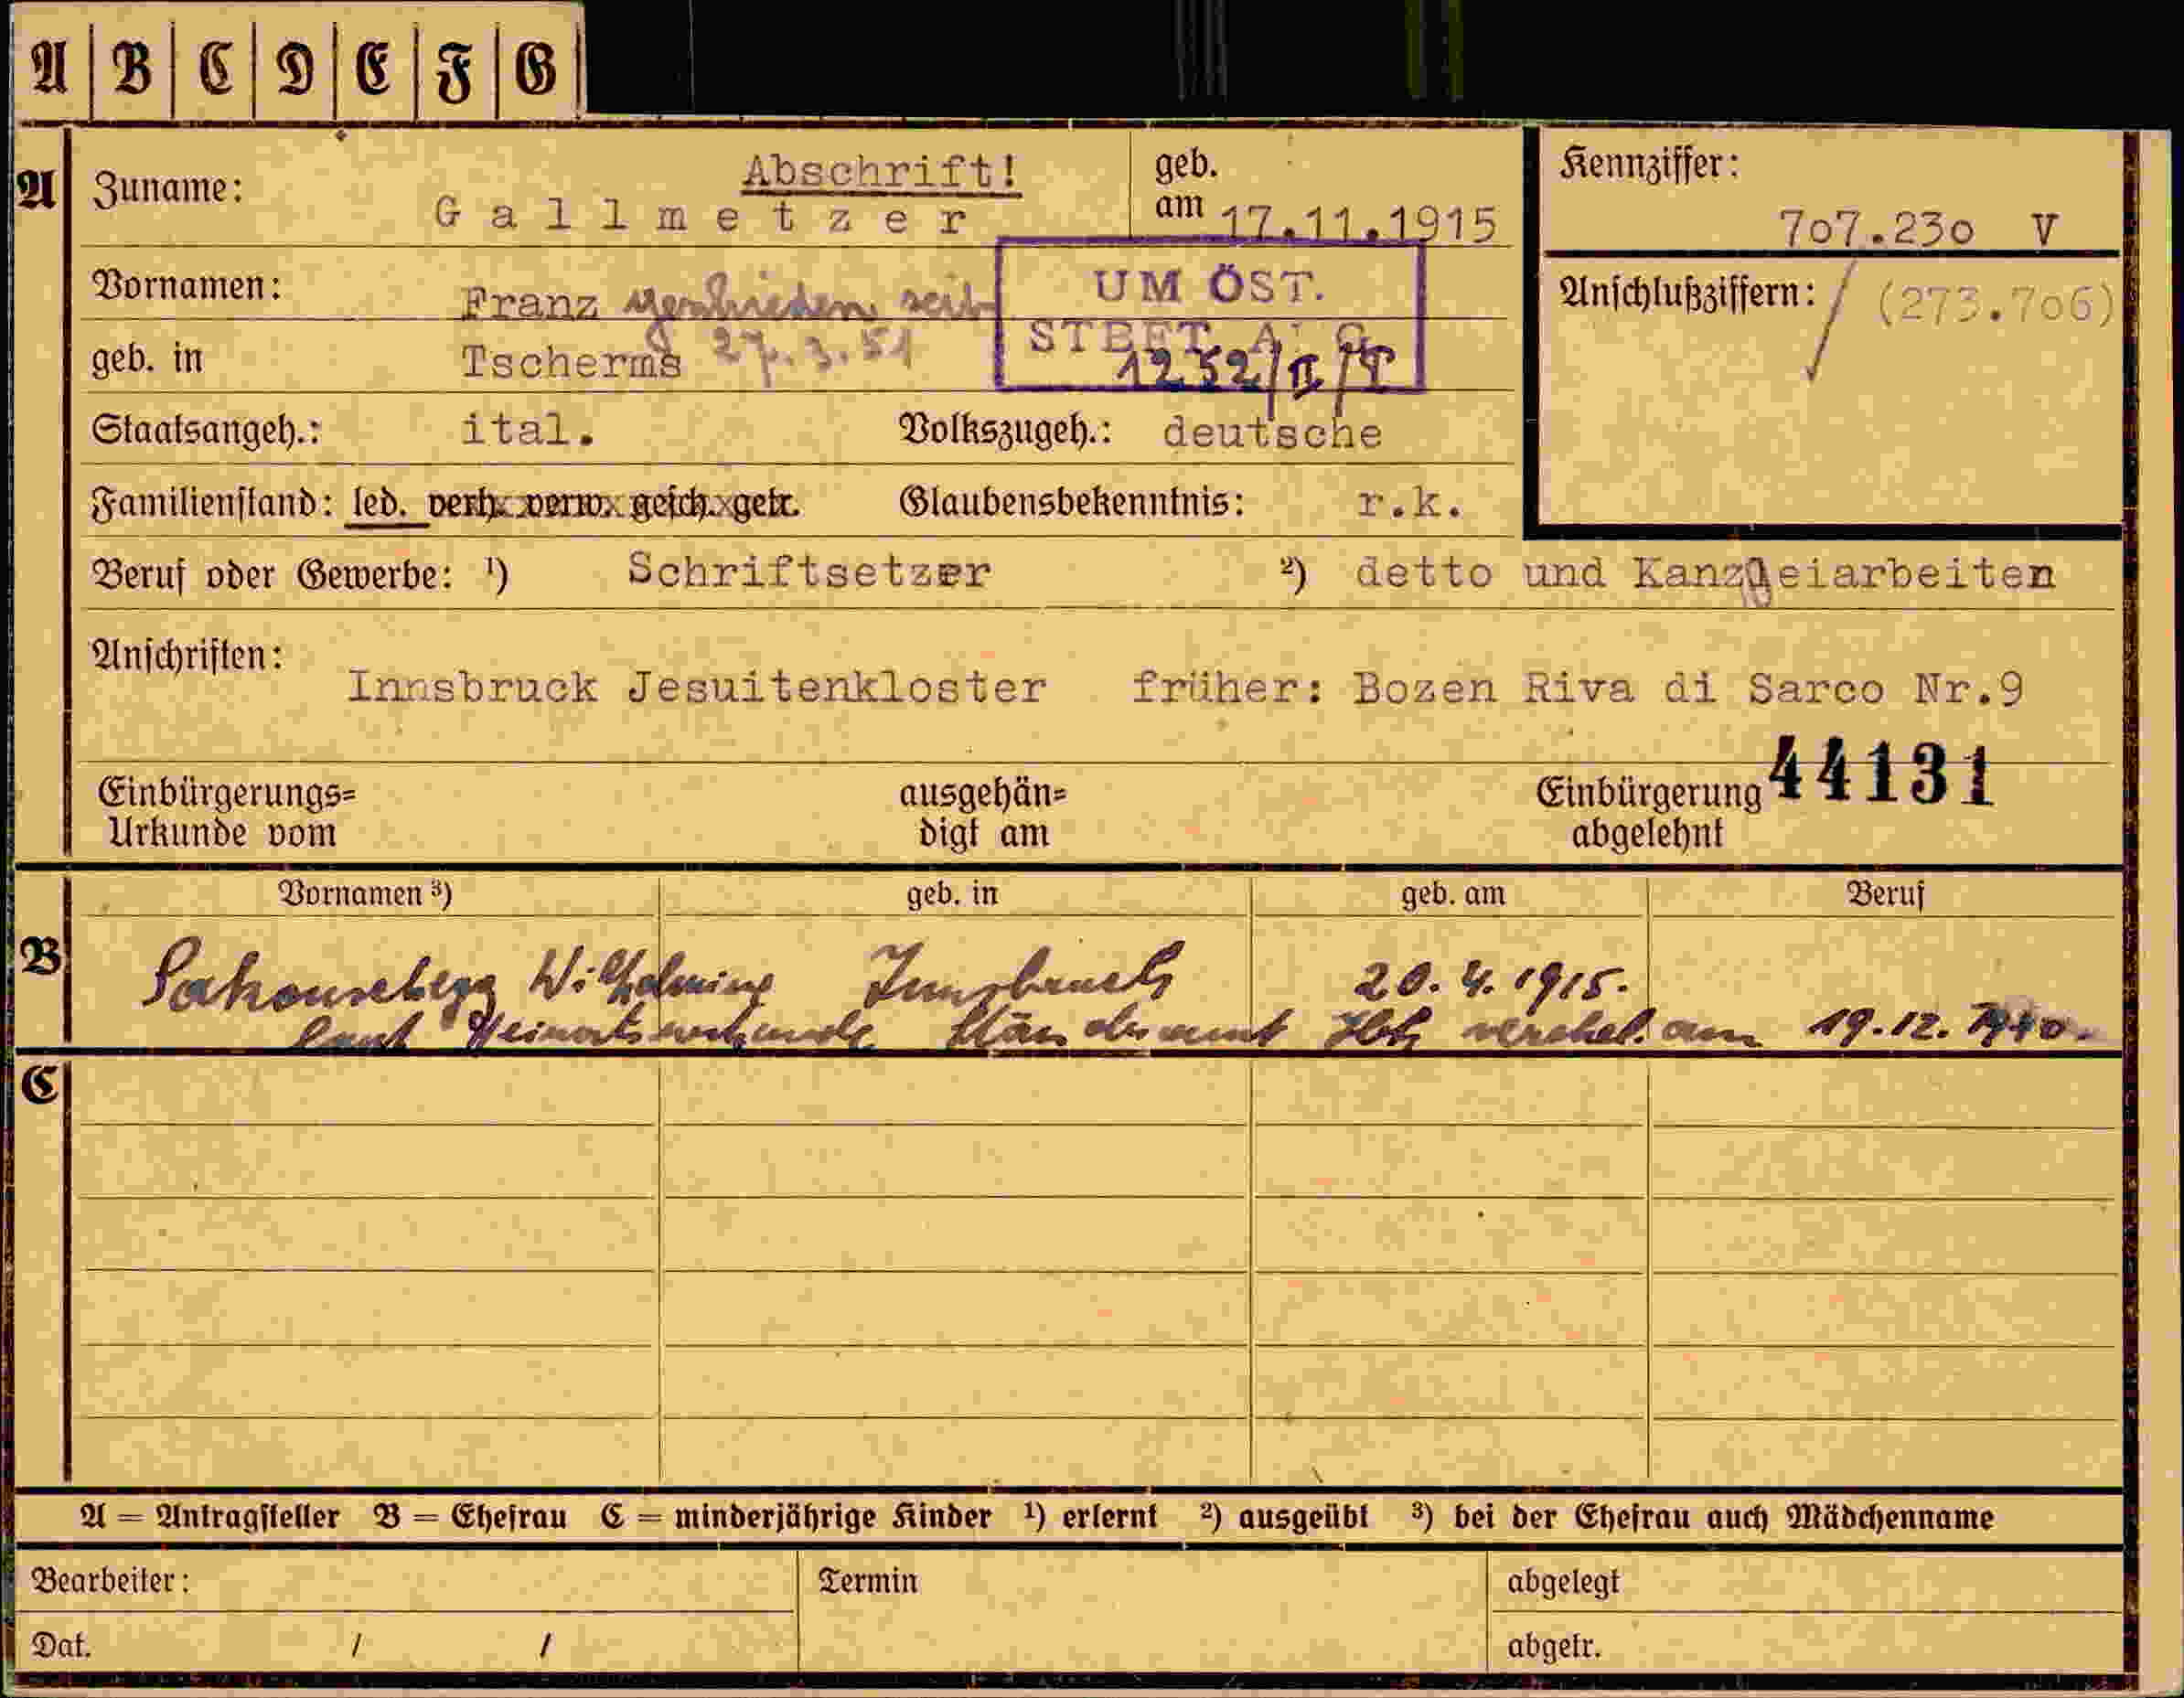 A B C D E F G
Abschrift!
A Zuname: Gallmetzer geb. am 17.11.1915 Kennziffer: 707.230 V
Vornamen: Franz geschieden seit UM ÖST. Anschlußziffern: / (273.706)
geb. in Tscherms 27.3.51 STBFT. A 1252/II/
Staatsangeh.: ital. Volkszugeh.: deutsche
Familienstand: led. verh. verw. gesch. getr. Glaubensbekenntnis: r.k.
Beruf oder Gewerbe: ¹) Schriftsetzer ²) detto und Kanzleiarbeiten
Anschriften: Innsbruck Jesuitenkloster früher: Bozen Riva di Sarco Nr.9
44131
Einbürgerungs= Urkunde vom ausgehän= digt am Einbürgerung abgelehnt
Vornamen ³) geb. in geb. am Beruf
B Wilhelmine Innsbruck 20.4.1915.
laut Heiratsurkunde Standesamt Ibk verehel. am 19.12.1940.
C
A = Antragsteller B = Ehefrau C = minderjährige Kinder ¹) erlernt ²) ausgeübt ³) bei der Ehefrau auch Mädchenname
Bearbeiter: Termin abgelegt
Dat. / / abgetr.